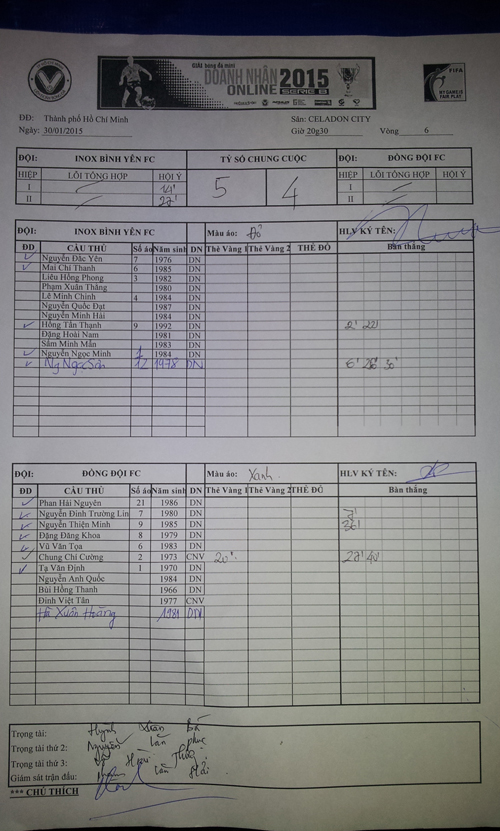 GIẢI bóng đá mini
DOANH NHÂN 2015
ONLINE SERIE B
FIFA
MY GAME IS FAIR PLAY
ĐĐ: Thành phố Hồ Chí Minh Sân: CELADON CITY
Ngày: 30/01/2015 Giờ 20g30 Vòng 6
ĐỘI: INOX BÌNH YÊN FC TỶ SỐ CHUNG CUỘC ĐỘI: ĐỒNG ĐỘI FC
HIỆP LỖI TỔNG HỢP HỘI Ý 5 4 HIỆP LỖI TỔNG HỢP HỘI Ý
I 14' I
II 27' II
ĐỘI: INOX BÌNH YÊN FC Màu áo: Đỏ HLV KÝ TÊN:
ĐD CẦU THỦ Số áo Năm sinh DN Thẻ Vàng 1 Thẻ Vàng 2 THẺ ĐỎ Bàn thắng
Nguyễn Đắc Yên 7 1976 DN
Mai Chí Thanh 6 1985 DN
Liêu Hồng Phong 3 1982 DN
Phạm Xuân Thắng 1980 DN
Lê Minh Chinh 4 1984 DN
Nguyễn Quốc Đạt 1987 DN
Nguyễn Minh Hải 1984 DN
Hồng Tấn Thạnh 9 1992 DN 2' 22'
Đặng Hoài Nam 1981 DN
Sầm Minh Mẫn 1983 DN
Nguyễn Ngọc Minh 1 1984 DN
Ng Ngọc Sơn 12 1978 DN 6' 26' 30'
ĐỘI: ĐỒNG ĐỘI FC Màu áo: Xanh HLV KÝ TÊN:
ĐD CẦU THỦ Số áo Năm sinh DN Thẻ Vàng 1 Thẻ Vàng 2 THẺ ĐỎ Bàn thắng
Phan Hải Nguyên 21 1986 DN
Nguyễn Đình Trường Lin 7 1980 DN 7'
Nguyễn Thiện Minh 9 1985 DN 36'
Đặng Đăng Khoa 8 1979 DN
Vũ Văn Tọa 6 1983 DN
Chung Chí Cường 2 1973 CNV 20'
Tạ Văn Định 1 1970 DN
Nguyễn Anh Quốc 1984 DN
Bùi Hồng Thanh 1966 DN
Đinh Việt Tân 1977 CNV
Hà Xuân Hoàng 1981 DN
Trọng tài: Huỳnh Xuân Bá
Trọng tài thứ 2: Nguyễn tấn phúc
Trọng tài thứ 3:
Giám sát trận đấu:
*** CHÚ THÍCH